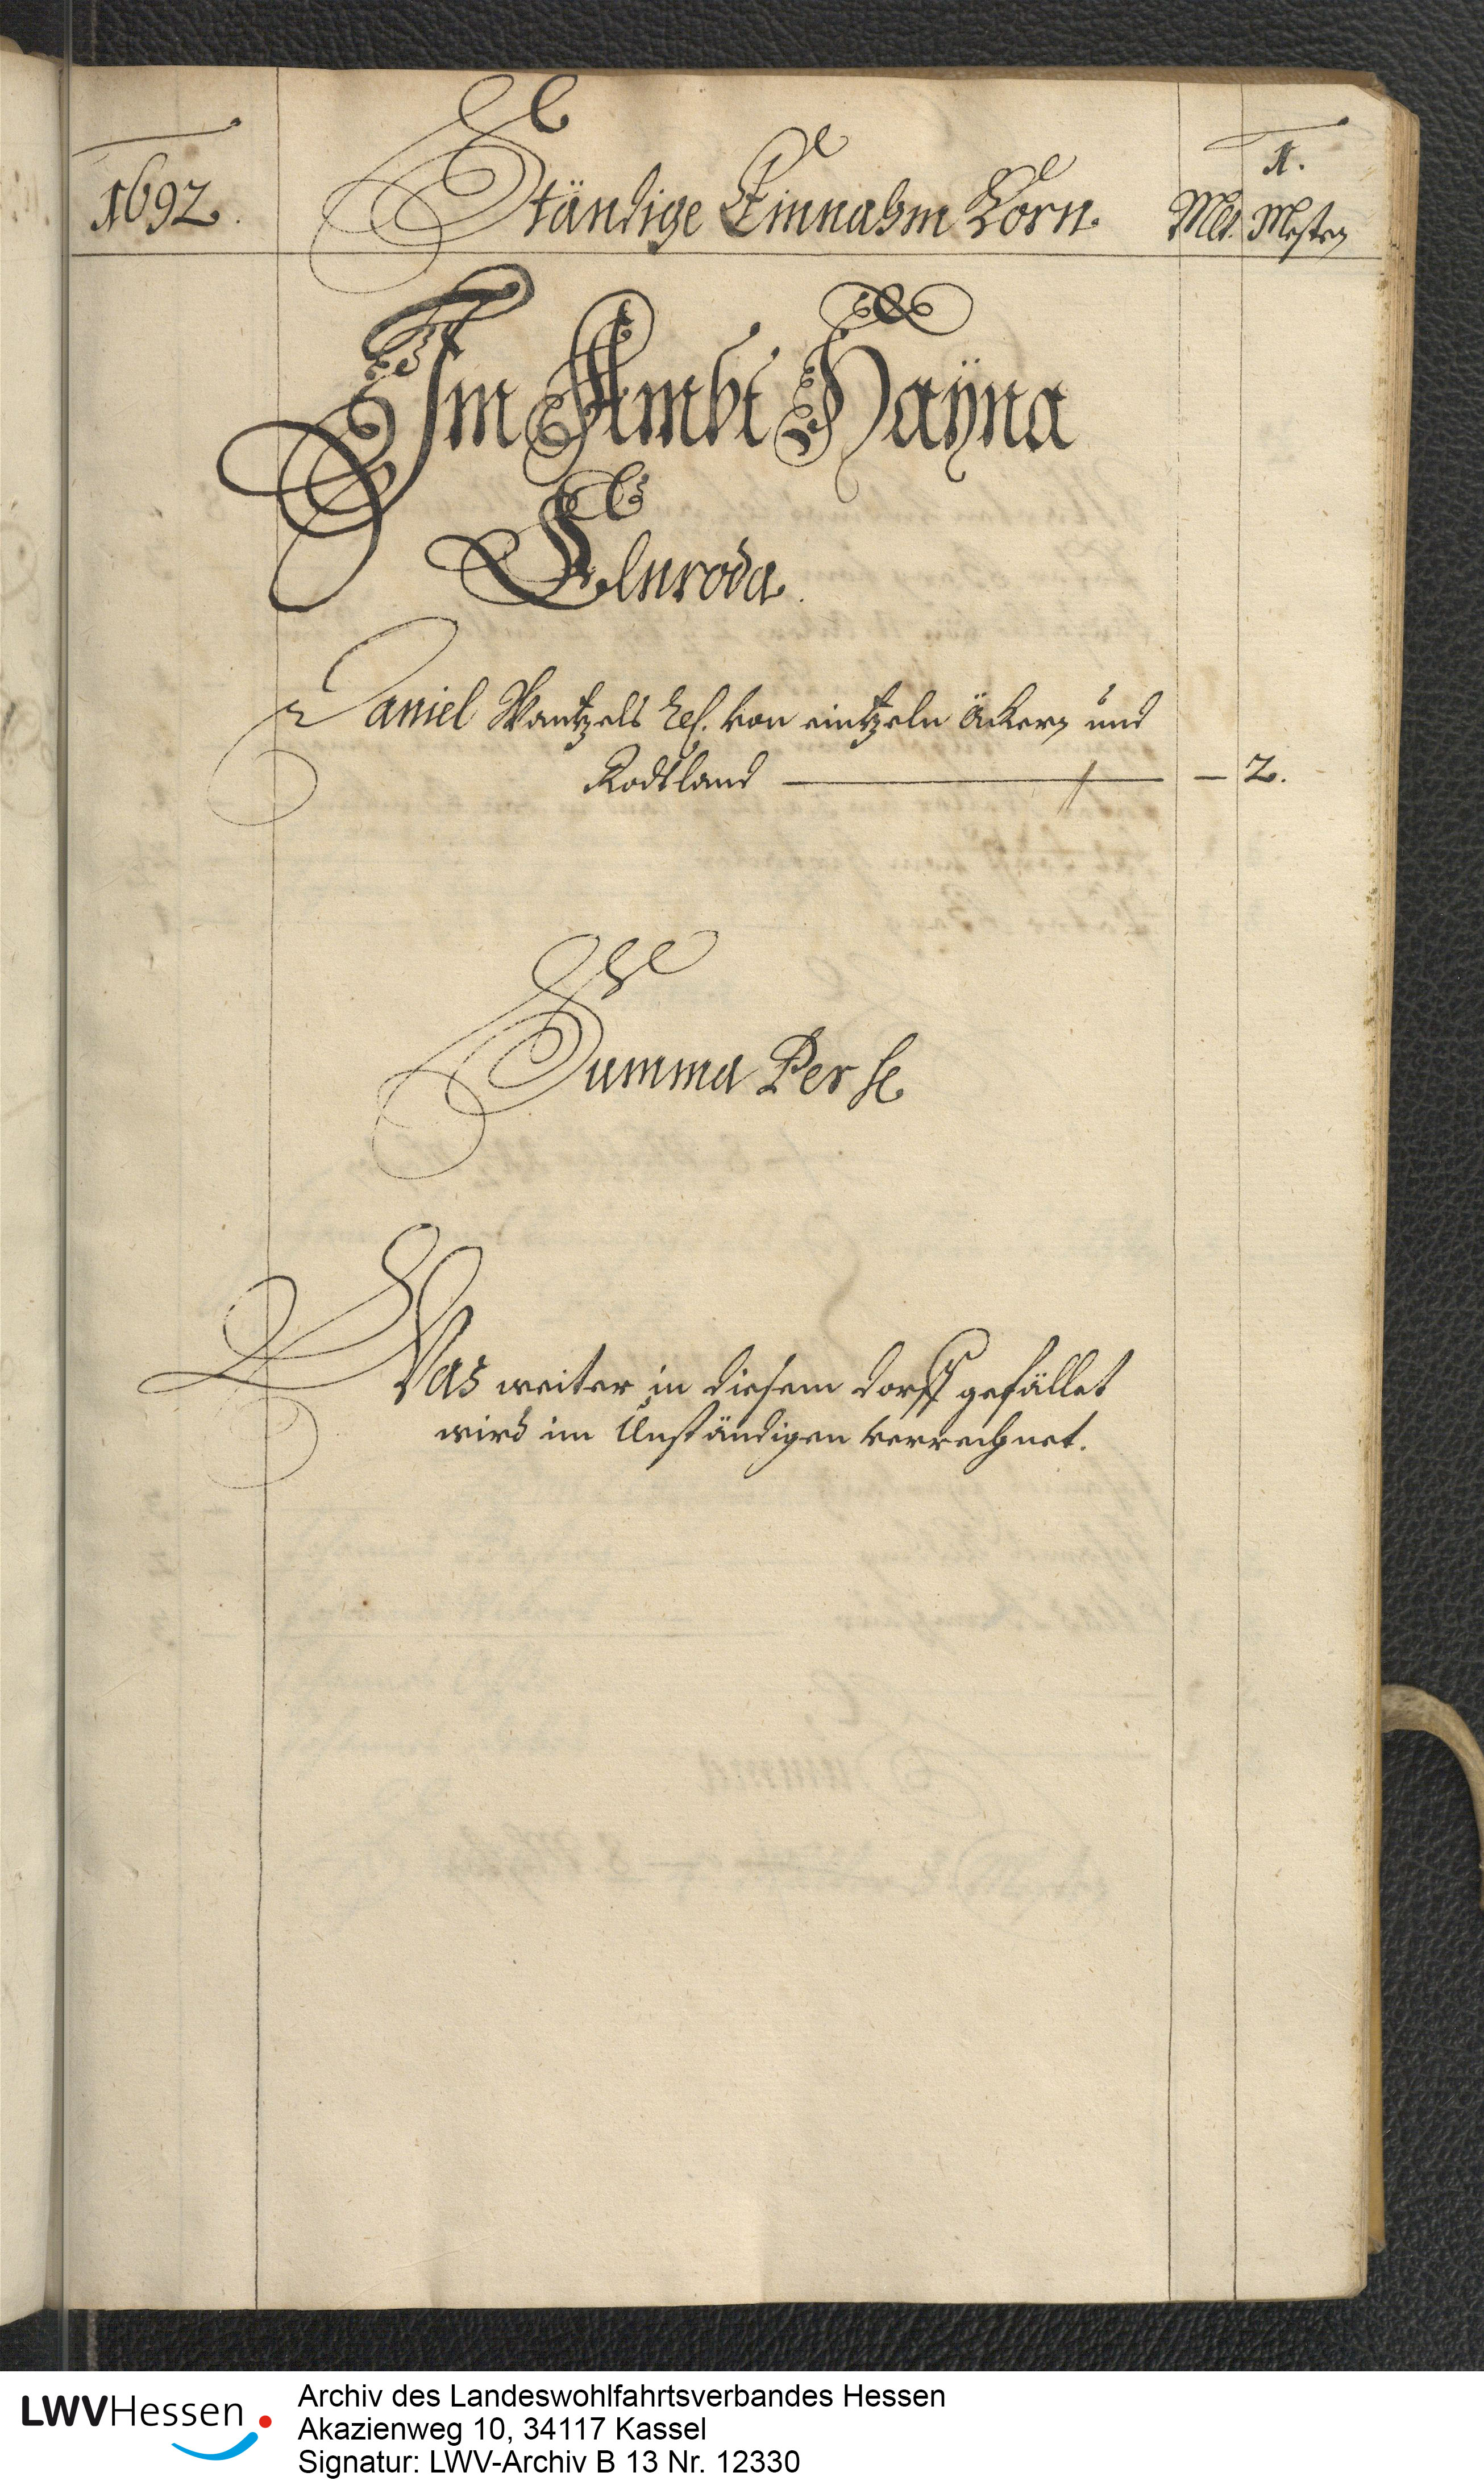 1692.
Ständige Einnahm Korn.
1.
Mltr. Mesten
Im Ambt Haÿna
Elnroda.
Daniel Wantzels rel. von eintzeln äckern und
Rodtland — — 2.
Summa Per se
Was weiter in diesem dorff gefället
wird im Unständigen verrechnet.
LWVHessen
Archiv des Landeswohlfahrtsverbandes Hessen
Akazienweg 10, 34117 Kassel
Signatur: LWV-Archiv B 13 Nr. 12330